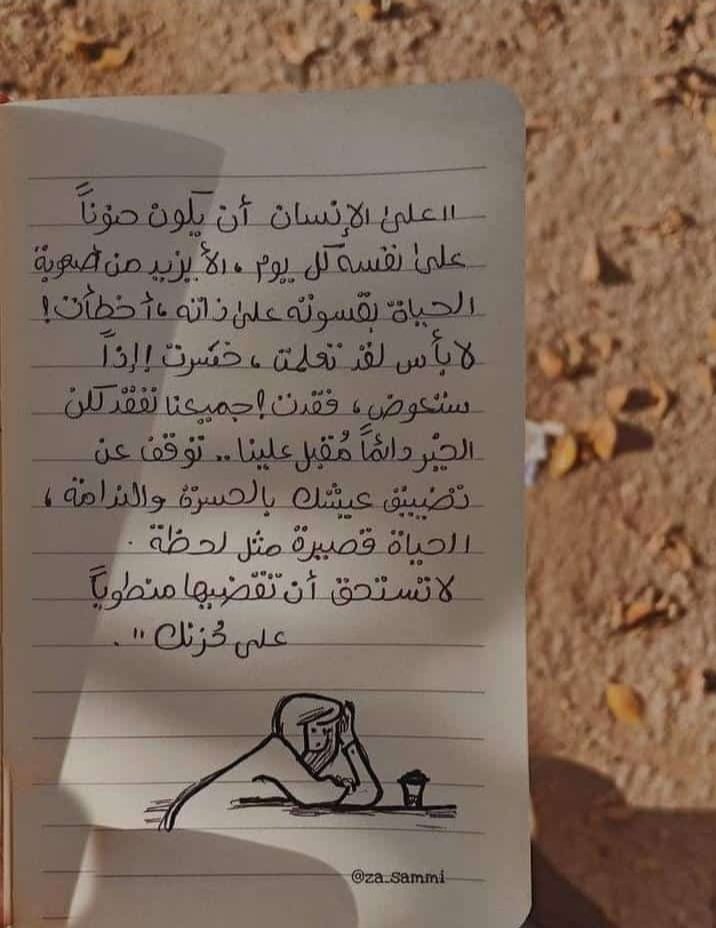 "على الإنسان أن يكون حنوناً
على نفسه كل يوم، ألا يزيد من صعوبة
الحياة بقسوته على ذاته، أخطأت!
لا بأس لقد تعلمت، خسرت! إذاً
ستعوض، فقدت! جميعنا نفقد لكن
الخير دائماً مُقبل علينا.. توقف عن
تضييق عيشك بالحسرة والندامة،
الحياة قصيرة مثل لحظة.
لا تستحق أن تقضيها منطوياً
على حُزنك".
@za_sammi